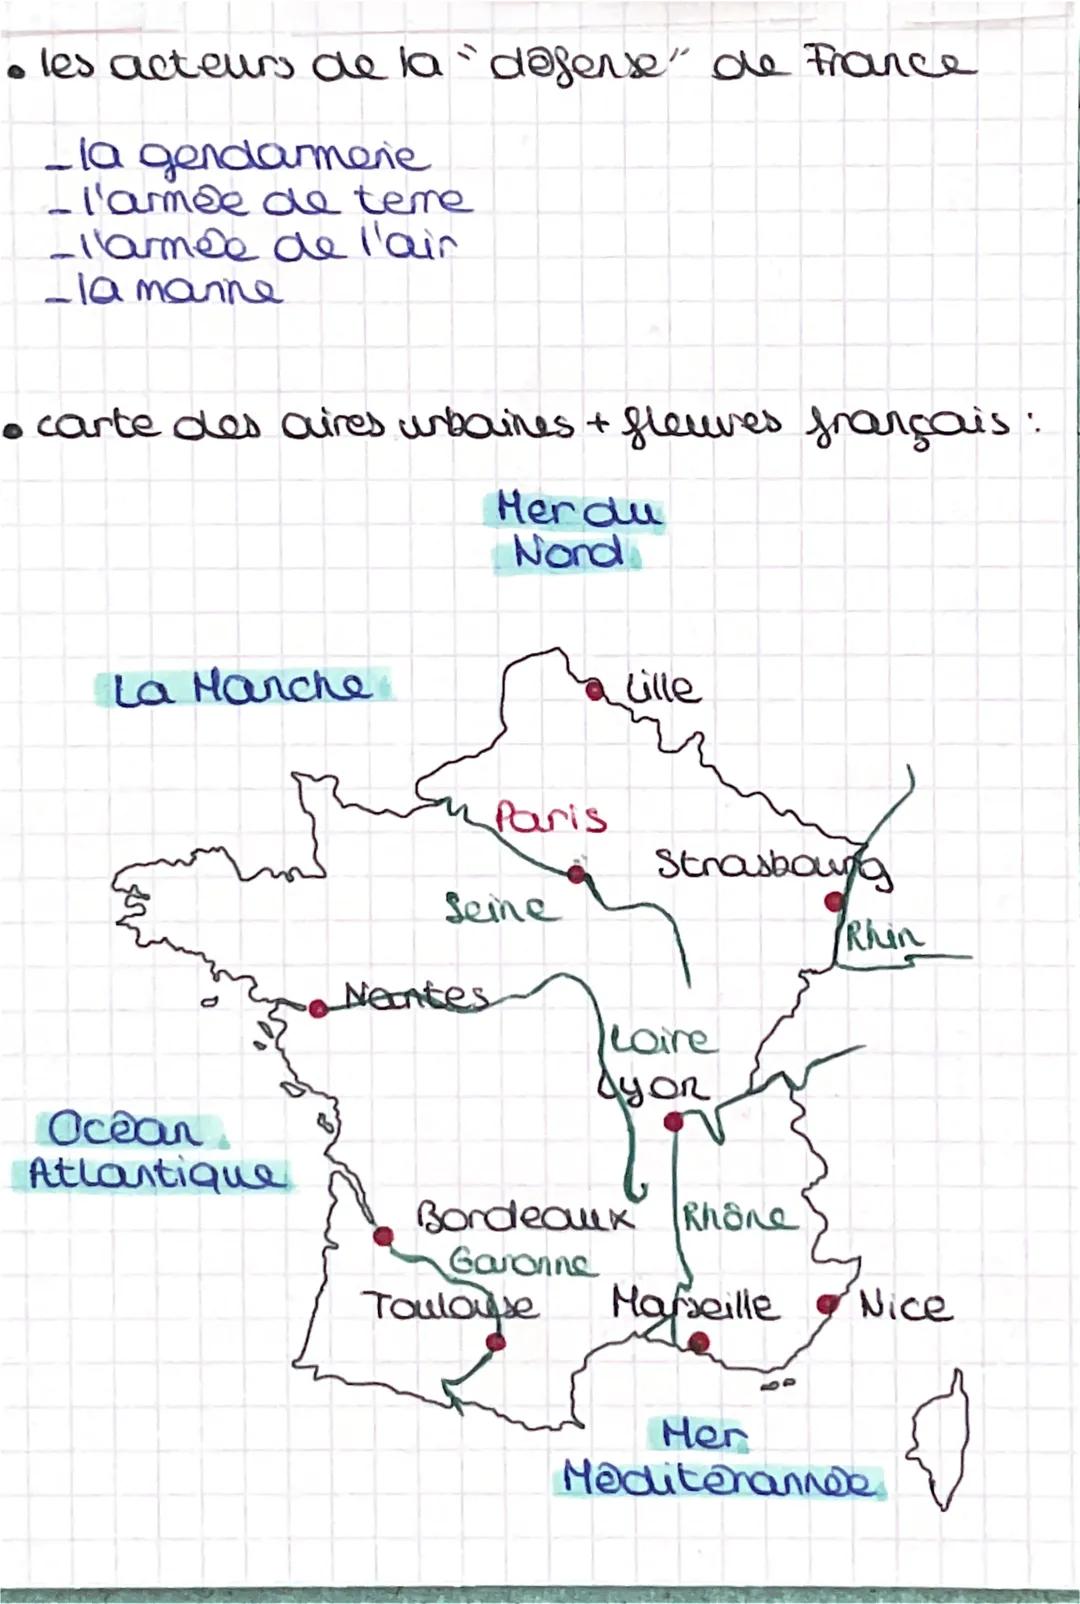 • les acteurs de la "défense" de France
- la gendarmerie
- l'armée de terre
- l'armée de l'air
- la marine
• carte des aires urbaines + fleuves français :
Mer du
Nord
La Manche
Lille
Paris
Strasbourg
Seine
Rhin
Nantes
Loire
Lyon
Océan
Atlantique
Bordeaux
Rhône
Garonne
Toulouse
Marseille
Nice
Mer
Méditérannée